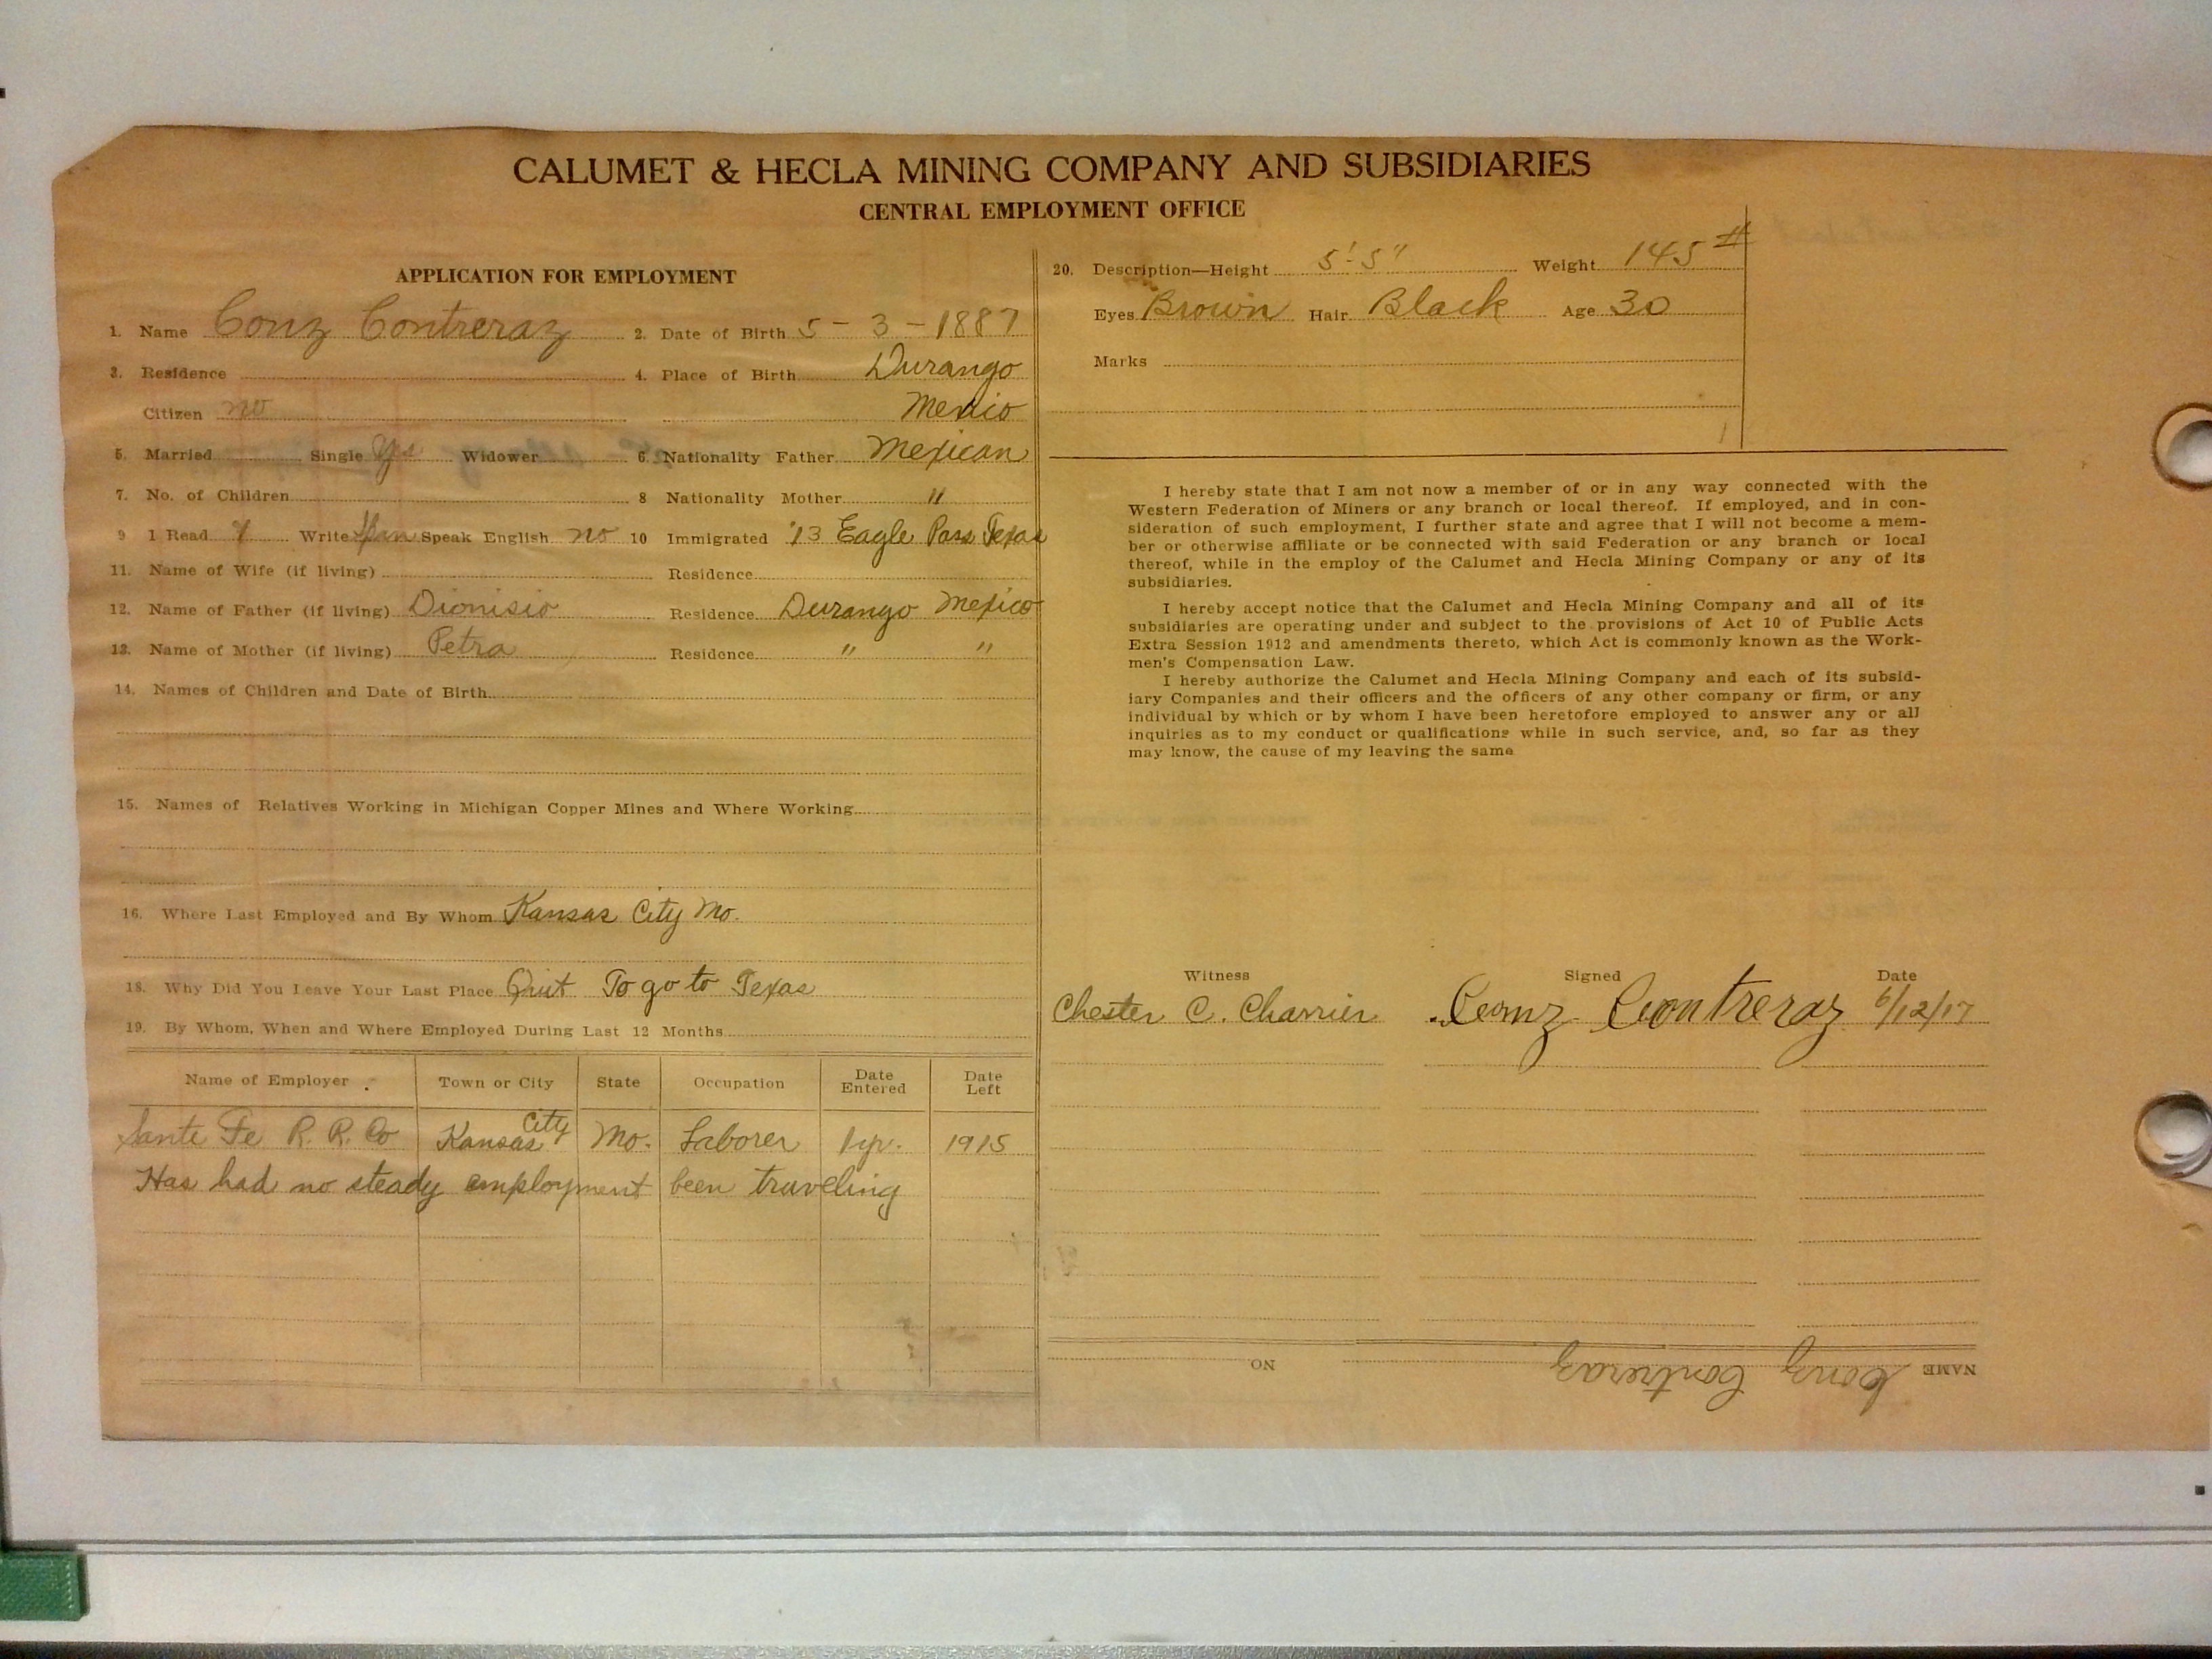 CALUMET & HECLA MINING COMPANY AND SUBSIDIARIES
CENTRAL EMPLOYMENT OFFICE
APPLICATION FOR EMPLOYMENT
1. Name Conz Contreraz 2. Date of Birth 5 - 3 - 1887
3. Residence 4. Place of Birth Durango
Citizen no Mexico
5. Married Single Yes Widower 6. Nationality Father Mexican
7. No. of Children 8 Nationality Mother "
9 1 Read Y Write Span Speak English no 10 Immigrated '13 Eagle Pass Texas
11. Name of Wife (if living) Residence
12. Name of Father (if living) Dionisio Residence Durango Mexico
13. Name of Mother (if living) Petra Residence " "
14. Names of Children and Date of Birth
15. Names of Relatives Working in Michigan Copper Mines and Where Working
16. Where Last Employed and By Whom Kansas City Mo.
18. Why Did You Leave Your Last Place Quit To go to Texas
19. By Whom, When and Where Employed During Last 12 Months
Name of Employer Town or City State Occupation Date Entered Date Left
Sante Fe R. R. Co Kansas City Mo. Laborer 1 yr. 1915
Has had no steady employment been traveling
20. Description—Height 5'-5" Weight 145 #
Eyes Brown Hair Black Age 30
Marks
I hereby state that I am not now a member of or in any way connected with the
Western Federation of Miners or any branch or local thereof. If employed, and in con-
sideration of such employment, I further state and agree that I will not become a mem-
ber or otherwise affiliate or be connected with said Federation or any branch or local
thereof, while in the employ of the Calumet and Hecla Mining Company or any of its
subsidiaries.
I hereby accept notice that the Calumet and Hecla Mining Company and all of its
subsidiaries are operating under and subject to the provisions of Act 10 of Public Acts
Extra Session 1912 and amendments thereto, which Act is commonly known as the Work-
men's Compensation Law.
I hereby authorize the Calumet and Hecla Mining Company and each of its subsid-
iary Companies and their officers and the officers of any other company or firm, or any
individual by which or by whom I have been heretofore employed to answer any or all
inquiries as to my conduct or qualifications while in such service, and, so far as they
may know, the cause of my leaving the same
Witness Signed Date
Chester C. Charrier Comz Contreraz 6/12/17
NAME Conz Contreraz NO